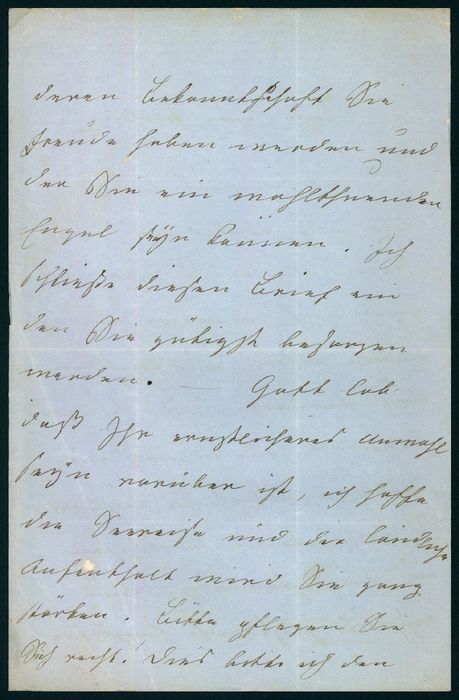 deren Bekanntschaft Sie
Freude haben werden und
der Sie ein wohlthuender
Engel seyn können. Ich
schließe diesen Brief ein
den Sie gütigst besorgen
werden. — Gott lob
daß Ihr ernstlicheres Unwohl
seyn vorüber ist, ich hoffe
die Seereise und der ländliche
Aufenthalt wird Sie ganz
stärken. Bitte pflegen Sie
Sich recht! Dies bitte ich den